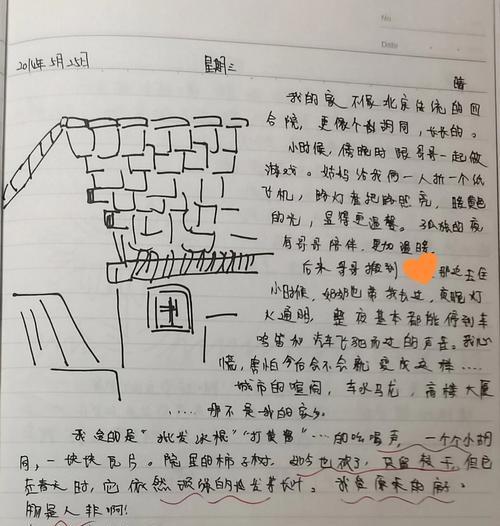 No
Date
2014年5月25日 星期三 晴
我的家不像北京传统的四
合院，更像个小胡同，长长的。
小时候，傍晚时跟哥哥一起做
游戏。姑妈给我俩一人折一个纸
飞机，路灯查把路照亮，暗黄色
的光，显得更温馨。孤独的夜
有哥哥陪伴，更加温暖
后来哥哥搬到 那边去住
小时候，奶奶也带我去过，夜晚灯
火通明，整夜基本都能停到车
鸣笛和汽车飞驰而过的声音。我心
慌，害怕今后会不会就变成这样……
城市的喧闹，车水马龙，高楼大厦
……哪不是我的家乡。
我念的是“批发冰棍”“打黄酱”……的吆喝声，一个个小胡
同，一块块瓦片。院里的柿子树，
在春天时，它依然顽强的 发芽长叶。我
物是人非啊！